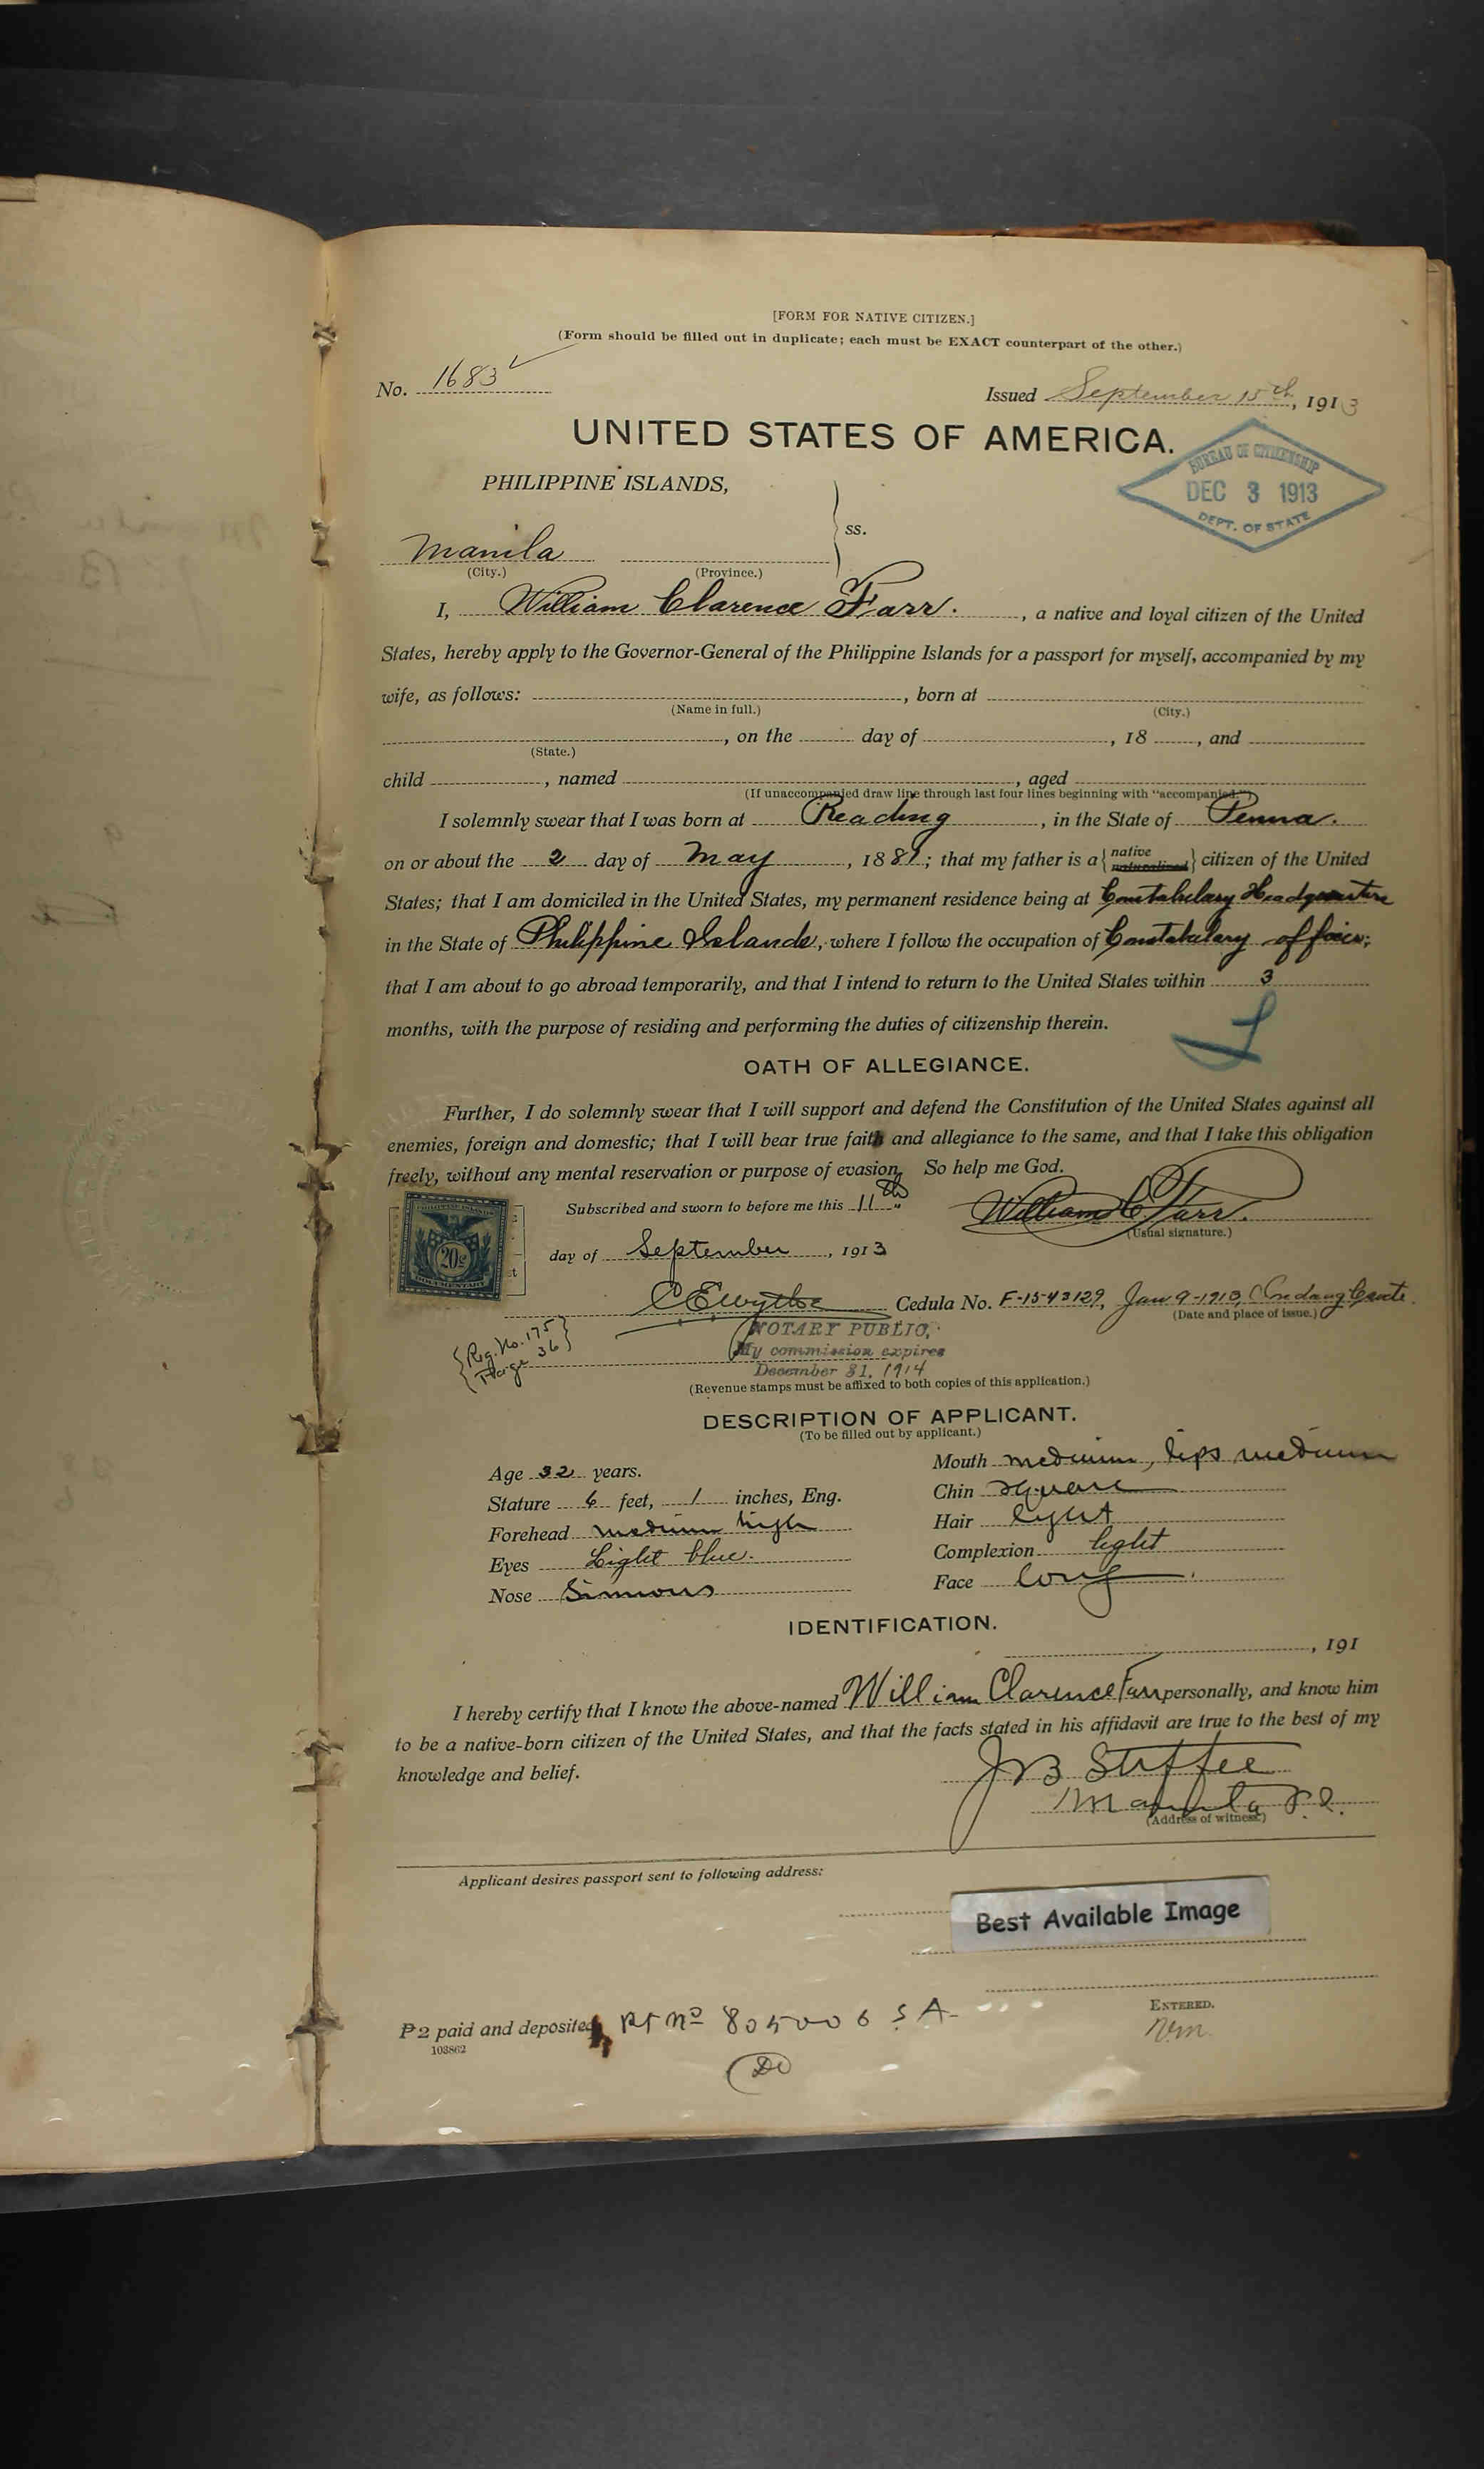 [FORM FOR NATIVE CITIZEN.]
(Form should be filled out in duplicate; each must be EXACT counterpart of the other.)
No. 1683
Issued September 15th, 1913
UNITED STATES OF AMERICA.
PHILIPPINE ISLANDS,
BUREAU OF CITIZENSHIP
DEC 3 1913
DEPT. OF STATE
ss.
Manila
(City.) (Province.)
I, William Clarence Farr., a native and loyal citizen of the United
States, hereby apply to the Governor-General of the Philippine Islands for a passport for myself, accompanied by my
wife, as follows: , born at
(Name in full.) (City.)
, on the day of , 18 , and
(State.)
child , named , aged
(If unaccompanied draw line through last four lines beginning with "accompanied.")
I solemnly swear that I was born at Reading, in the State of Penna.
on or about the 2 day of May, 1881; that my father is a {native naturalized} citizen of the United
States; that I am domiciled in the United States, my permanent residence being at Constabulary Headquarters
in the State of Philippine Islands, where I follow the occupation of Constabulary officer;
that I am about to go abroad temporarily, and that I intend to return to the United States within 3
months, with the purpose of residing and performing the duties of citizenship therein.
OATH OF ALLEGIANCE.
Further, I do solemnly swear that I will support and defend the Constitution of the United States against all
enemies, foreign and domestic; that I will bear true faith and allegiance to the same, and that I take this obligation
freely, without any mental reservation or purpose of evasion. So help me God.
Subscribed and sworn to before me this 11th William C. Farr.
(Usual signature.)
PHILIPPINE ISLANDS
20c
DOCUMENTARY
day of September, 1913
Cedula No. F-1543129, Jan 9-1913,
(Date and place of issue.)
NOTARY PUBLIC,
My commission expires
December 31, 1914
{Reg. No. 175}
{Page 36}
(Revenue stamps must be affixed to both copies of this application.)
DESCRIPTION OF APPLICANT.
(To be filled out by applicant.)
Age 32 years.
Stature 6 feet, 1 inches, Eng.
Forehead medium high
Eyes Light blue.
Nose
Mouth medium, lips medium
Chin square
Hair light
Complexion light
Face long
IDENTIFICATION.
, 191
I hereby certify that I know the above-named William Clarence Farr personally, and know him
to be a native-born citizen of the United States, and that the facts stated in his affidavit are true to the best of my
knowledge and belief.
Manila P.I.
(Address of witness.)
Applicant desires passport sent to following address:
Best Available Image
₱2 paid and deposited, Rt No 805006 S A-
103862
ENTERED.